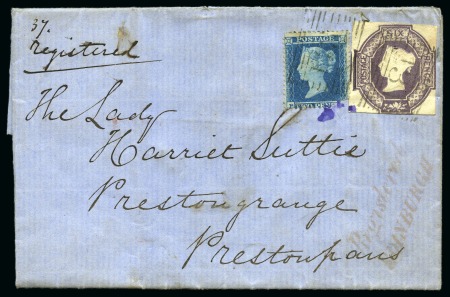 37.
Registered
POSTAGE
SIX
The Lady
Harriet Suttie
Prestongrange
Prestonpans
Registered
EDINBURGH